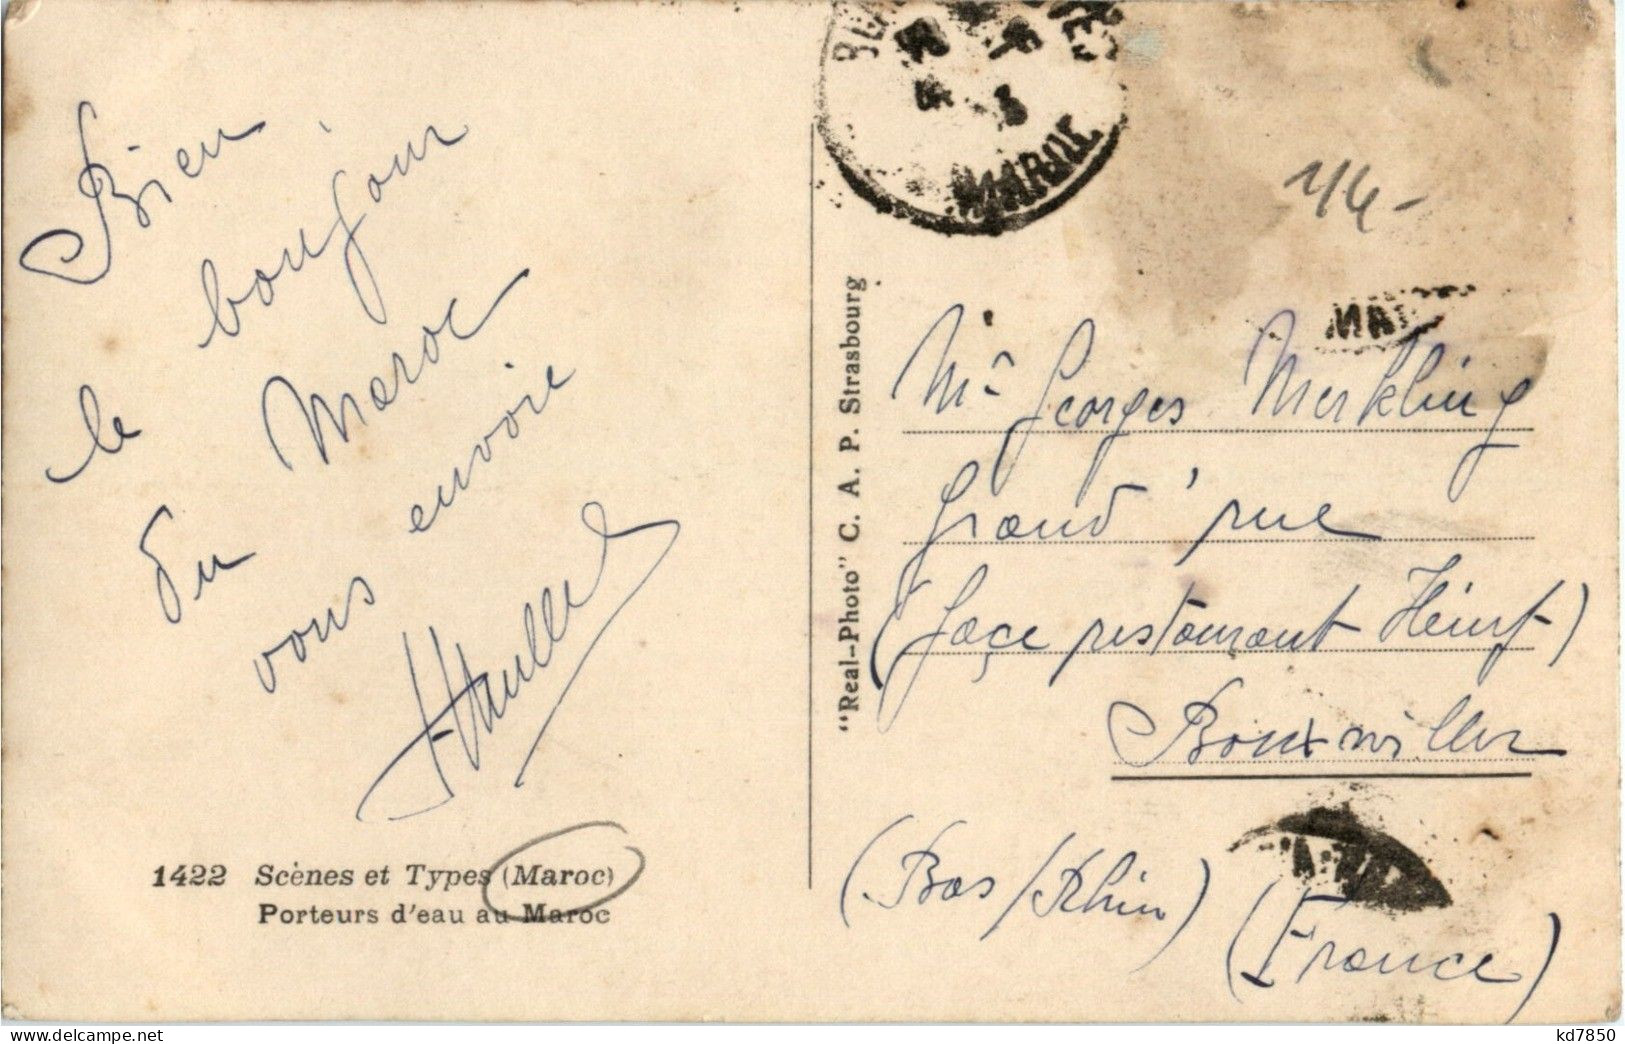 Bien
le bonjour
du Maroc
vous envoie
1422 Scènes et Types (Maroc)
Porteurs d'eau au Maroc
"Real-Photo" C. A. P. Strasbourg
MARINE
1/4-
MA
Mr Georges Merkling
Grand'rue
(face restaurant Heintz)
Bouxwiller
(Bas/Rhin)
(France)
kd7850